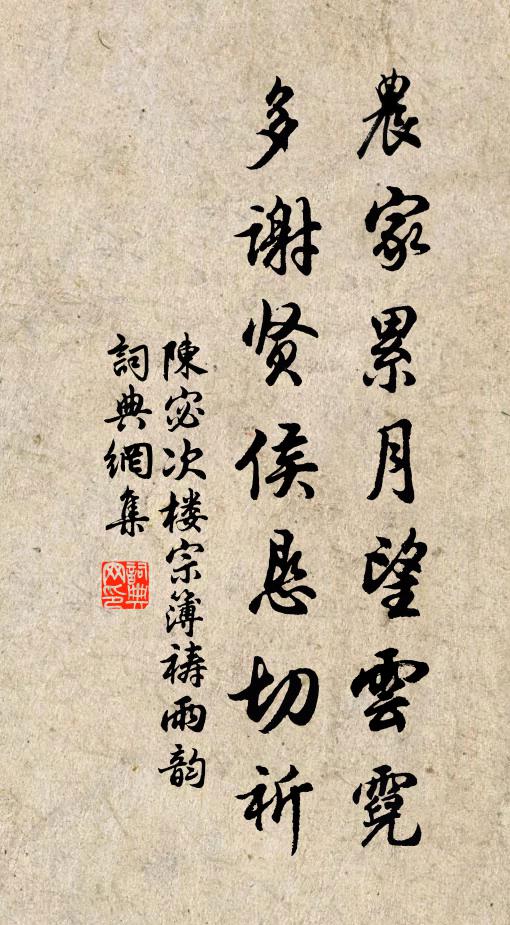 農家累月望雲霓
多謝贤侯恳切祈
陳宓次楼宗簿禱雨韵
詞典網集
詞典網印